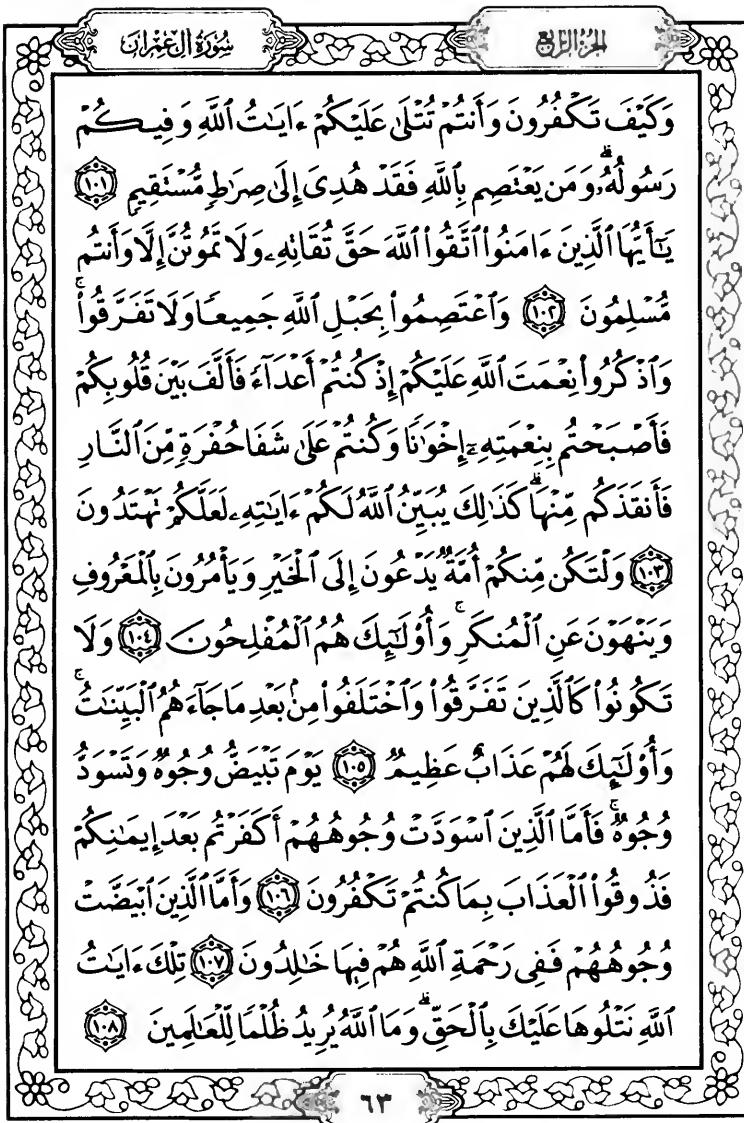 سُورَةُ آلِ عِمْرَانَ
الجُزْءُ الرَّابِعُ
وَكَيْفَ تَكْفُرُونَ وَأَنتُمْ تُتْلَىٰ عَلَيْكُمْ ءَايَـٰتُ ٱللَّهِ وَفِيكُمْ
رَسُولُهُۥ ۗ وَمَن يَعْتَصِم بِٱللَّهِ فَقَدْ هُدِىَ إِلَىٰ صِرَٰطٍ مُّسْتَقِيمٍ ١٠١
يَـٰٓأَيُّهَا ٱلَّذِينَ ءَامَنُوا۟ ٱتَّقُوا۟ ٱللَّهَ حَقَّ تُقَاتِهِۦ وَلَا تَمُوتُنَّ إِلَّا وَأَنتُم
مُّسْلِمُونَ ١٠٢ وَٱعْتَصِمُوا۟ بِحَبْلِ ٱللَّهِ جَمِيعًا وَلَا تَفَرَّقُوا۟ ۚ
وَٱذْكُرُوا۟ نِعْمَتَ ٱللَّهِ عَلَيْكُمْ إِذْ كُنتُمْ أَعْدَآءً فَأَلَّفَ بَيْنَ قُلُوبِكُمْ
فَأَصْبَحْتُم بِنِعْمَتِهِۦٓ إِخْوَٰنًا وَكُنتُمْ عَلَىٰ شَفَا حُفْرَةٍ مِّنَ ٱلنَّارِ
فَأَنقَذَكُم مِّنْهَا ۗ كَذَٰلِكَ يُبَيِّنُ ٱللَّهُ لَكُمْ ءَايَـٰتِهِۦ لَعَلَّكُمْ تَهْتَدُونَ
١٠٣ وَلْتَكُن مِّنكُمْ أُمَّةٌ يَدْعُونَ إِلَى ٱلْخَيْرِ وَيَأْمُرُونَ بِٱلْمَعْرُوفِ
وَيَنْهَوْنَ عَنِ ٱلْمُنكَرِ ۚ وَأُو۟لَـٰٓئِكَ هُمُ ٱلْمُفْلِحُونَ ١٠٤ وَلَا
تَكُونُوا۟ كَٱلَّذِينَ تَفَرَّقُوا۟ وَٱخْتَلَفُوا۟ مِنۢ بَعْدِ مَا جَآءَهُمُ ٱلْبَيِّنَـٰتُ ۚ
وَأُو۟لَـٰٓئِكَ لَهُمْ عَذَابٌ عَظِيمٌ ١٠٥ يَوْمَ تَبْيَضُّ وُجُوهٌ وَتَسْوَدُّ
وُجُوهٌ ۚ فَأَمَّا ٱلَّذِينَ ٱسْوَدَّتْ وُجُوهُهُمْ أَكَفَرْتُم بَعْدَ إِيمَـٰنِكُمْ
فَذُوقُوا۟ ٱلْعَذَابَ بِمَا كُنتُمْ تَكْفُرُونَ ١٠٦ وَأَمَّا ٱلَّذِينَ ٱبْيَضَّتْ
وُجُوهُهُمْ فَفِى رَحْمَةِ ٱللَّهِ هُمْ فِيهَا خَـٰلِدُونَ ١٠٧ تِلْكَ ءَايَـٰتُ
ٱللَّهِ نَتْلُوهَا عَلَيْكَ بِٱلْحَقِّ ۗ وَمَا ٱللَّهُ يُرِيدُ ظُلْمًا لِّلْعَـٰلَمِينَ ١٠٨
٦٣